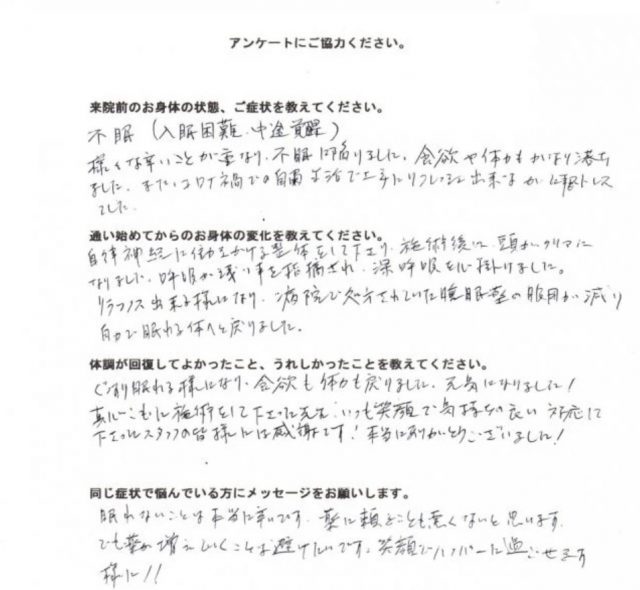 アンケートにご協力ください。
来院前のお身体の状態、ご症状を教えてください。
不眠（入眠困難、中途覚醒）
様々な辛いことが重なり、不眠に陥りました。食欲や体力もかなり落ち
ました。また、コロナ禍での自粛生活で上手にリフレッシュ出来なかった事もストレス
でした。
通い始めてからのお身体の変化を教えてください。
自律神経に働きかける整体をして下さり、施術後に、頭がクリアに
なりました。呼吸が浅い事を指摘され、深呼吸を心掛けました。
リラックス出来る様になり、病院で処方されていた睡眠薬の服用が減り
自力で眠れる体へと戻りました。
体調が回復してよかったこと、うれしかったことを教えてください。
ぐっすり眠れる様になり、食欲も体力も戻りました。元気になりました！
真心こもに施術をして下さった先生、いつも笑顔で気持ちの良い対応して
下さったスタッフの皆様には感謝です！本当にありがとうございました！
同じ症状で悩んでいる方にメッセージをお願いします。
眠れないことは本当に辛いです。薬に頼ることも悪くないと思います。
でも薬が増えていくことは避けたいです。笑顔で過ごせます
様に!!